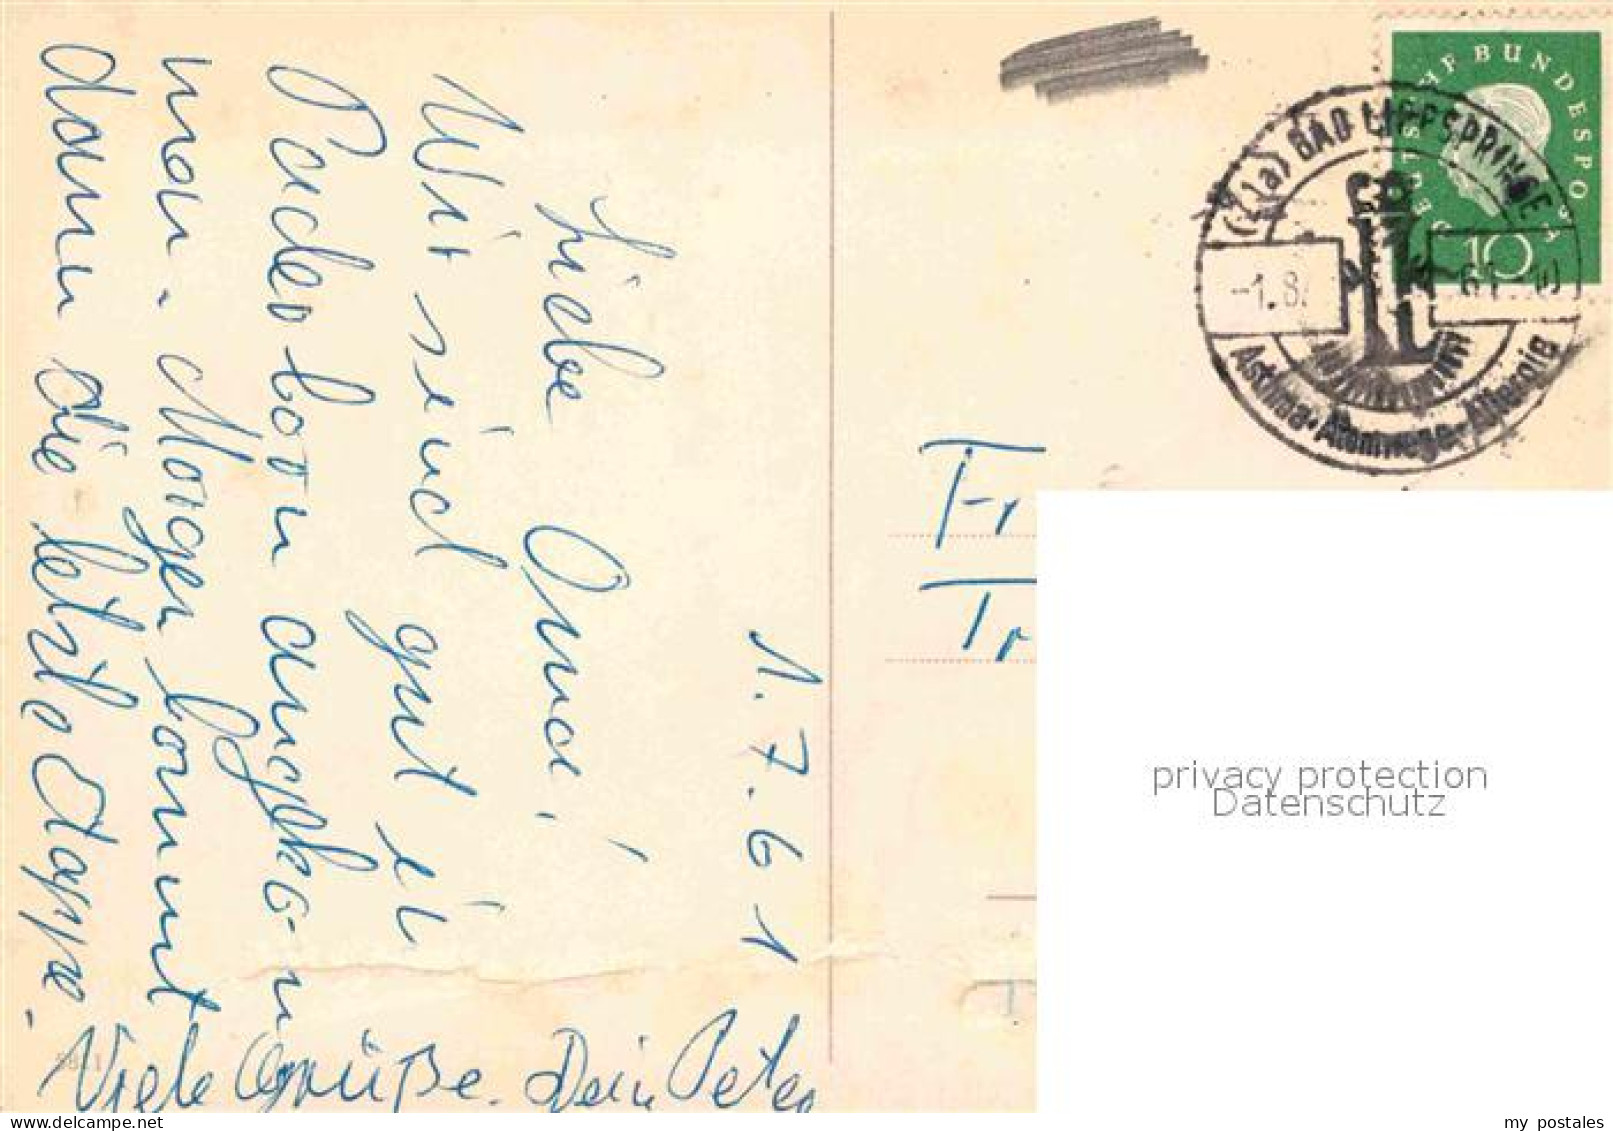 1.7.61
Liebe Oma!
Wir sind gut in
Paderborn angeko-
man. Morgen kommt
dann die letzte Etappe.
Viele Grüße. Dein Peter
DEUTSCHE BUNDESPOST
10
(21a) BAD LIPPSPRINGE
-1.8.
61
Asthma·Atemwege·Allergie
Fr
Tr
privacy protection
Datenschutz
my_postales